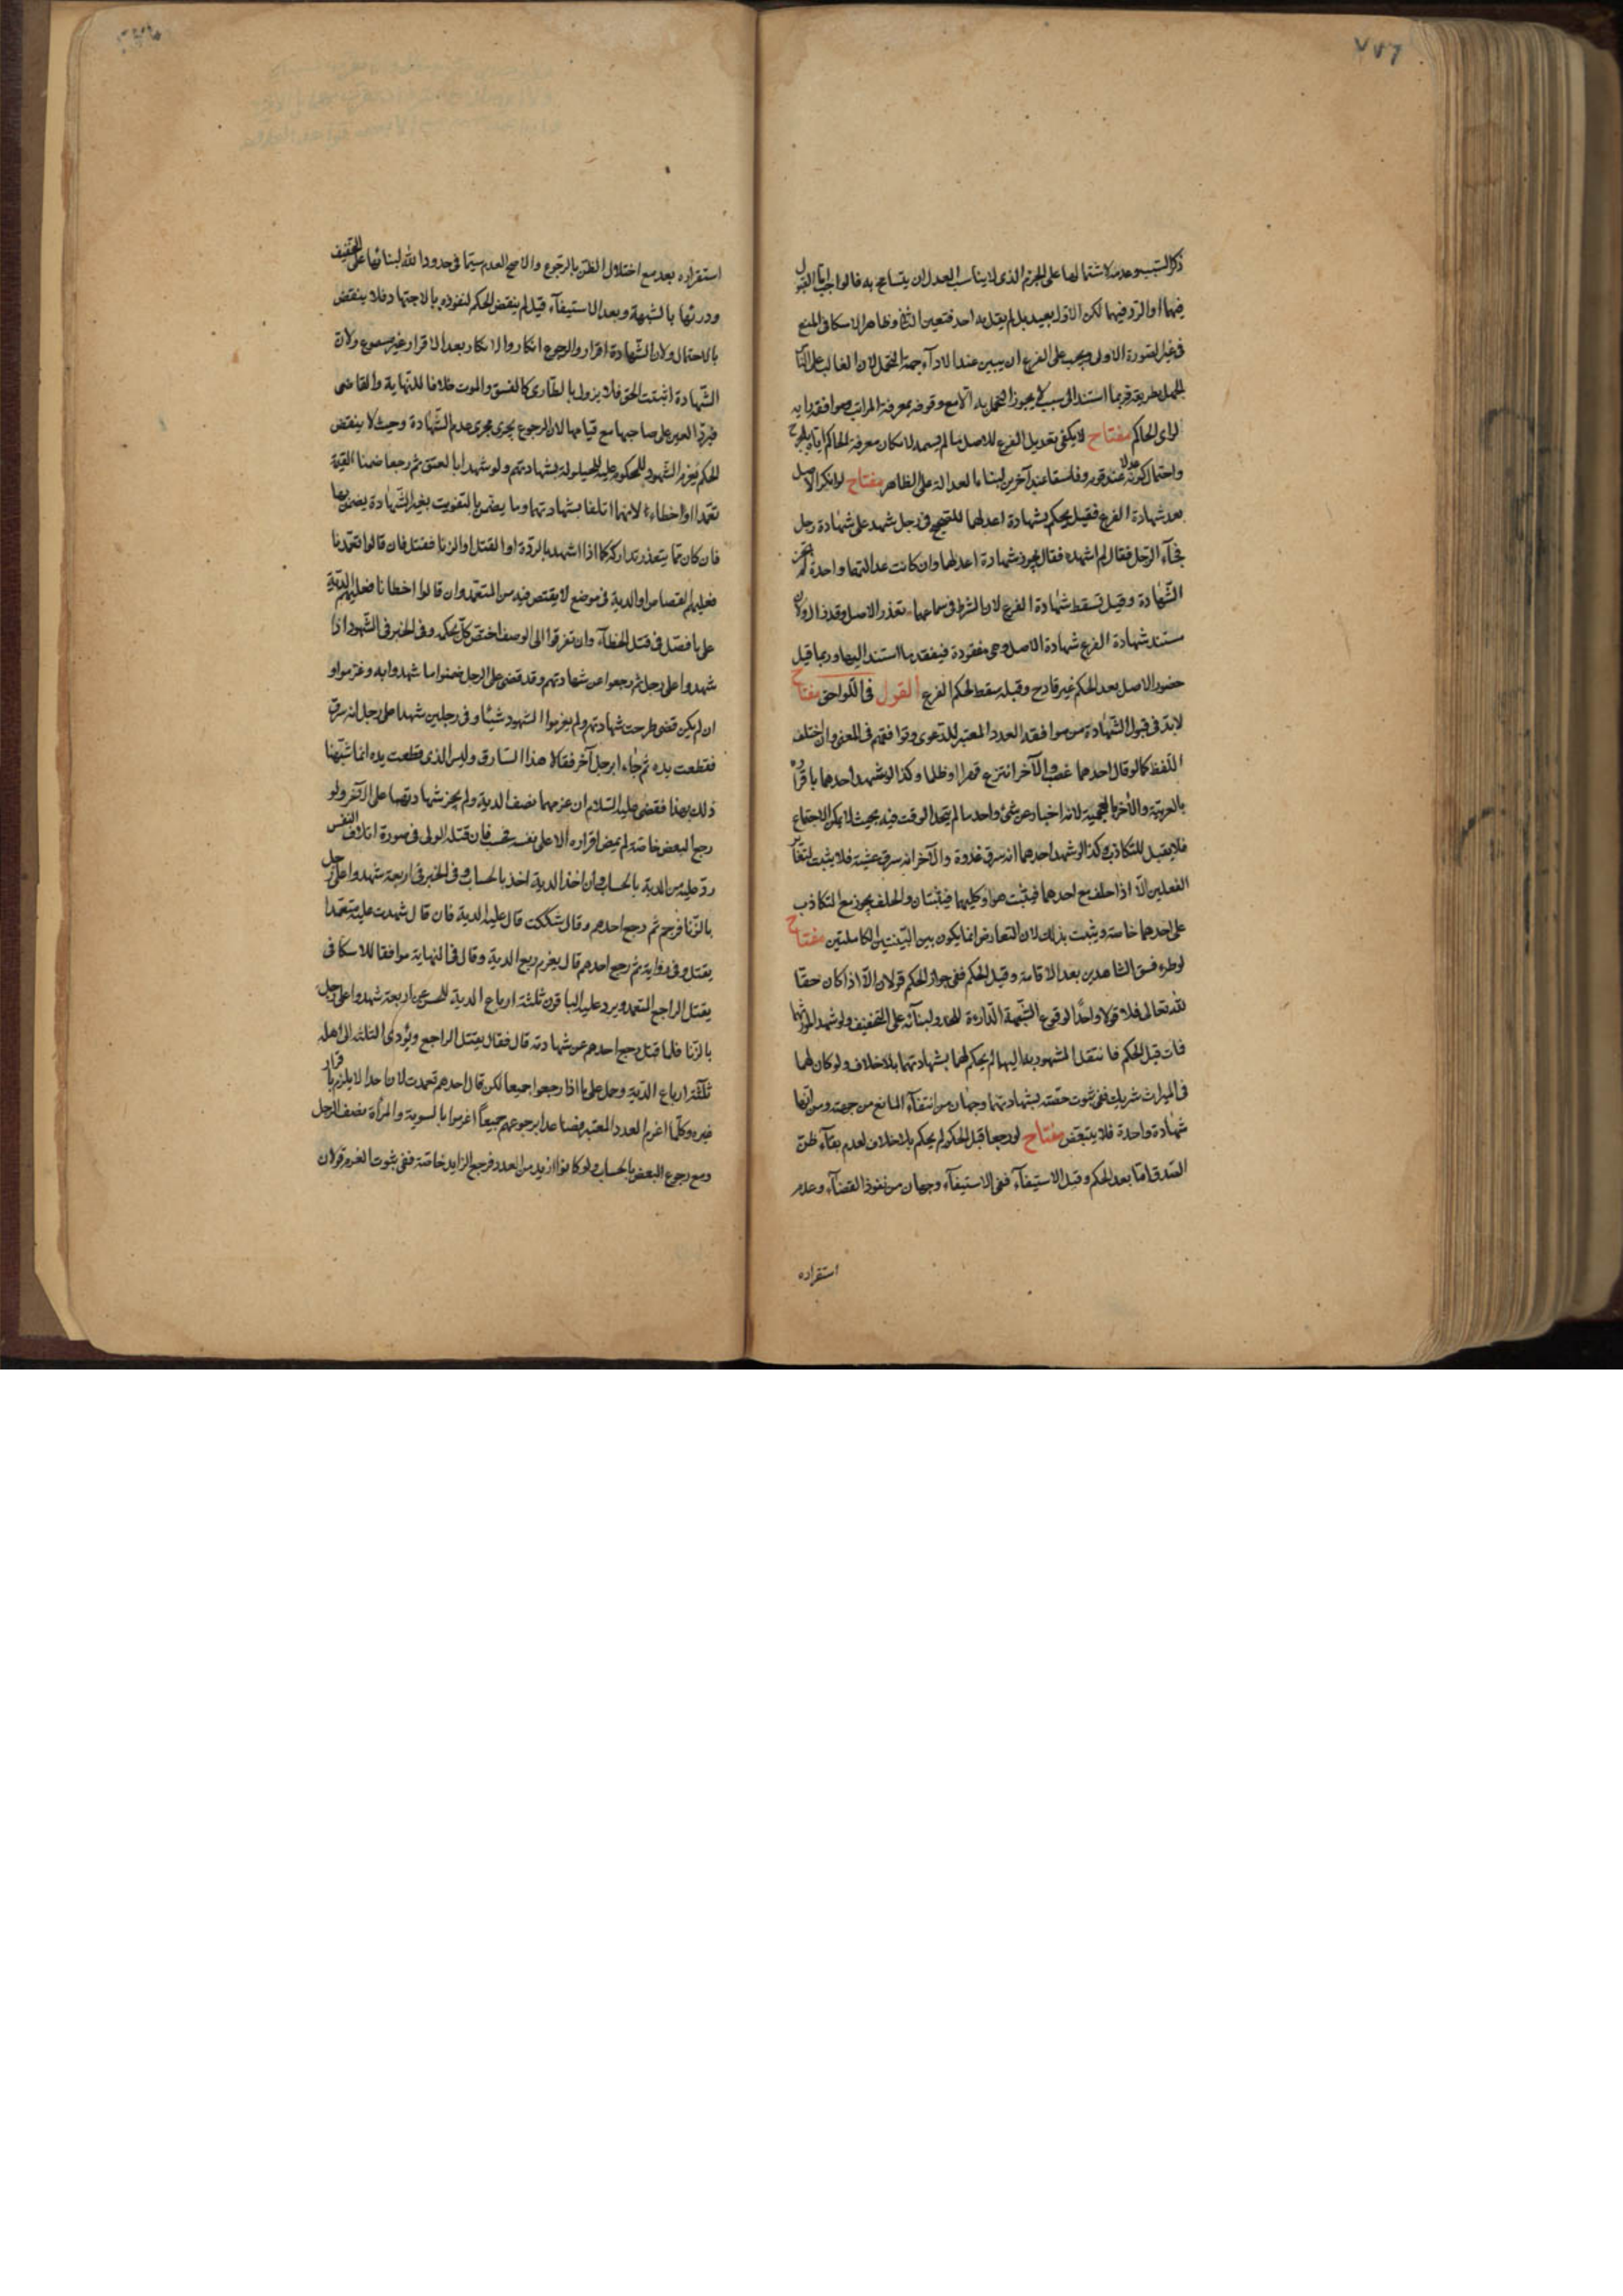 ذكر السبب وعدمه لاشتمالها على الجزم الذى لا يناسب العدل ان يتسامح به فالواجب اما القبول
فيهما او الرد فيهما لكن الاول بعيد بل لم يقل به احد فتعين الثانى وظاهر الاسكافى المنع
فى غير الصورة الاولى ويجب على الفرع ان يبين عند الادآء جهة التحمل لان الغالب على الناس
الجهل بطريقه فربما استند الى سبب لا يجوز التحمل به الا مع وثوقه بمعرفة المراتب وموافقة رايه
لراى الحاكم مفتاح لا يكفى تعديل الفرع للاصل ما لم يسمه لامكان معرفة الحاكم اياه بالجرح
واحتمال كونه عدلا عند قوم وفاسقا عند آخرين لبناء العدالة على الظاهر مفتاح لو انكر الاصل
بعد شهادة الفرع فقيل يحكم بشهادة اعدلهما للصحيح فى رجل شهد على شهادة رجل
فجآء الرجل فقال لم اشهده فقال يجوز شهادة اعدلهما وان كانت عدالتهما واحدة لم تجز
الشهادة وقيل تسقط شهادة الفرع لان الشرط فى سماعها تعذر الاصل وقد زال ولان
مستند شهادة الفرع شهادة الاصل وهى مفقودة فيفقد ما استند اليها وربما قيل
حضور الاصل بعد الحكم غير قادح وقبله سقط لحكم الفرع القول فى اللواحق مفتاح
لا بد فى قبول الشهادة من موافقة العدد المعتبر للدعوى وتوافقهم فى المعنى وان اختلف
اللفظ كما لو قال احدهما غصب والآخر انتزع قهرا او ظلما وكذا لو شهد احدهما باقراره
بالعربية والآخر بالعجمية لانه اخبار عن شئ واحد ما لم يتحد الوقت فيه بحيث لا يمكن الاجتماع
فلا يقبل للتكاذب وكذا لو شهد احدهما انه سرق غدوة والآخر انه سرق عشية فلا يثبت لتغاير
الفعلين الا اذا حلف مع احدهما فيثبت هو او كليهما فيثبتان والحلف يجوز مع التكاذب
على احدهما خاصة ويثبت بذلك لان التعارض انما يكون بين البينتين الكاملتين مفتاح
لو طرء فسق الشاهدين بعد الاقامة وقبل الحكم ففى جواز الحكم قولان الا اذا كان حقا
لله تعالى فلا قولا واحدًا لوقوع الشبهة الدارءة للحد ولبنآئه على التخفيف ولو شهدا لمورثهما
فمات قبل الحكم فانتقل المشهود به اليهما لم يحكم لهما بشهادتهما بلا خلاف ولو كان لهما
فى الميراث شريك ففى ثبوت حقته بشهادتهما وجهان من انتفآء المانع من جهته ومن انها
شهادة واحدة فلا يتبعض مفتاح لو رجعا قبل الحكم لم يحكم بلا خلاف لعدم بقآء ظن
الصدق اما بعد الحكم وقبل الاستيفآء ففى الاستيفآء وجهان من نفوذ القضآء وعدم
استقراره
استقراره بعد مع اختلال الظن بالرجوع والاصح العدم سيما فى حدود الله لبنائها على التخفيف
ودرئها بالشبهة وبعد الاستيفآء قيل لم ينقض الحكم لنفوذه بالاجتهاد فلا ينقض
بالاحتمال ولان الشهادة اقرار والرجوع انكار والانكار بعد الاقرار غير مسموع ولان
الشهادة اثبتت الحق فلا يزول بالطارى كالفسق والموت خلافا للنهاية والقاضى
فيرد العين على صاحبها مع قيامها لان الرجوع يجرى مجرى عدم الشهادة وحيث لا ينقض
الحكم يغرم الشهود للمحكوم عليه للحيلولة بشهادتهم ولو شهدا بالعتق ثم رجعا ضمنا القيمة
تعمدا او اخطاء لانهما اتلفا بشهادتهما وما يضمن بالتفويت بغير الشهادة يضمن بها
فان كان مما يتعذر تداركه كما اذا شهد بالردة او القتل او الزنا فقتل فان قالوا تعمدنا
فعليهم القصاص او الدية فى موضع لا يقتص فيه من المتعمد وان قالوا اخطانا فعليهم الدية
على ما فصل فى قتل الخطآء وان تفرقوا الى الوصف اختص كل بحكمه وفى الخبر فى الشهود اذا
شهدوا على رجل ثم رجعوا عن شهادتهم وقد قضى على الرجل ضمنوا ما شهدوا به وغرموا و
ان لم يكن قضى طرحت شهادتهم ولم يغرموا الشهود شيئا وفى رجلين شهدا على رجل انه سرق
فقطعت يده ثم جاء ابرجل آخر فقالا هذا السارق وليس الذى قطعت يده انما شبهنا
ذلك بهذا فقضى عليه السلام ان غرمهما نصف الدية ولم يجز شهادتهما على الآخر ولو
رجع البعض خاصة لم يمض اقراره الا على نفسه فحسب فان قتله الولى فى صورة اتلاف النفس
رد عليه من الدية بالحساب وان اخذ الدية اخذ بالحساب وفى الخبر فى اربعة شهدوا على رجل
بالزنا فرجم ثم رجع احدهم وقال شككت قال عليه الدية فان قال شهدت عليه متعمدا
يقتل وفى رواية ثم رجع احدهم قال يغرم ربع الدية وقال فى النهاية موافقا للاسكافى
يقتل الراجع المتعمد ويرد عليه الباقون ثلثة ارباع الدية للحسن عن اربعة شهدوا على رجل
بالزنا فلما قتل رجع احدهم عن شهادته قال فقال يقتل الراجع ويؤدى الثلثة الى اهله
ثلثة ارباع الدية وحمل على ما اذا رجعوا جميعا لكن قال احدهم تعمدت لان احدا لا يلزم باقرار
غيره وكلما اغرم العدد المعتبر فصاعدا برجوعهم جميعاً اغرموا بالسوية والمرأة نصف الرجل
ومع رجوع البعض بالحساب ولو كانوا ازيد من العدد فرجع الزايد خاصة ففى ثبوت الغرم قولان